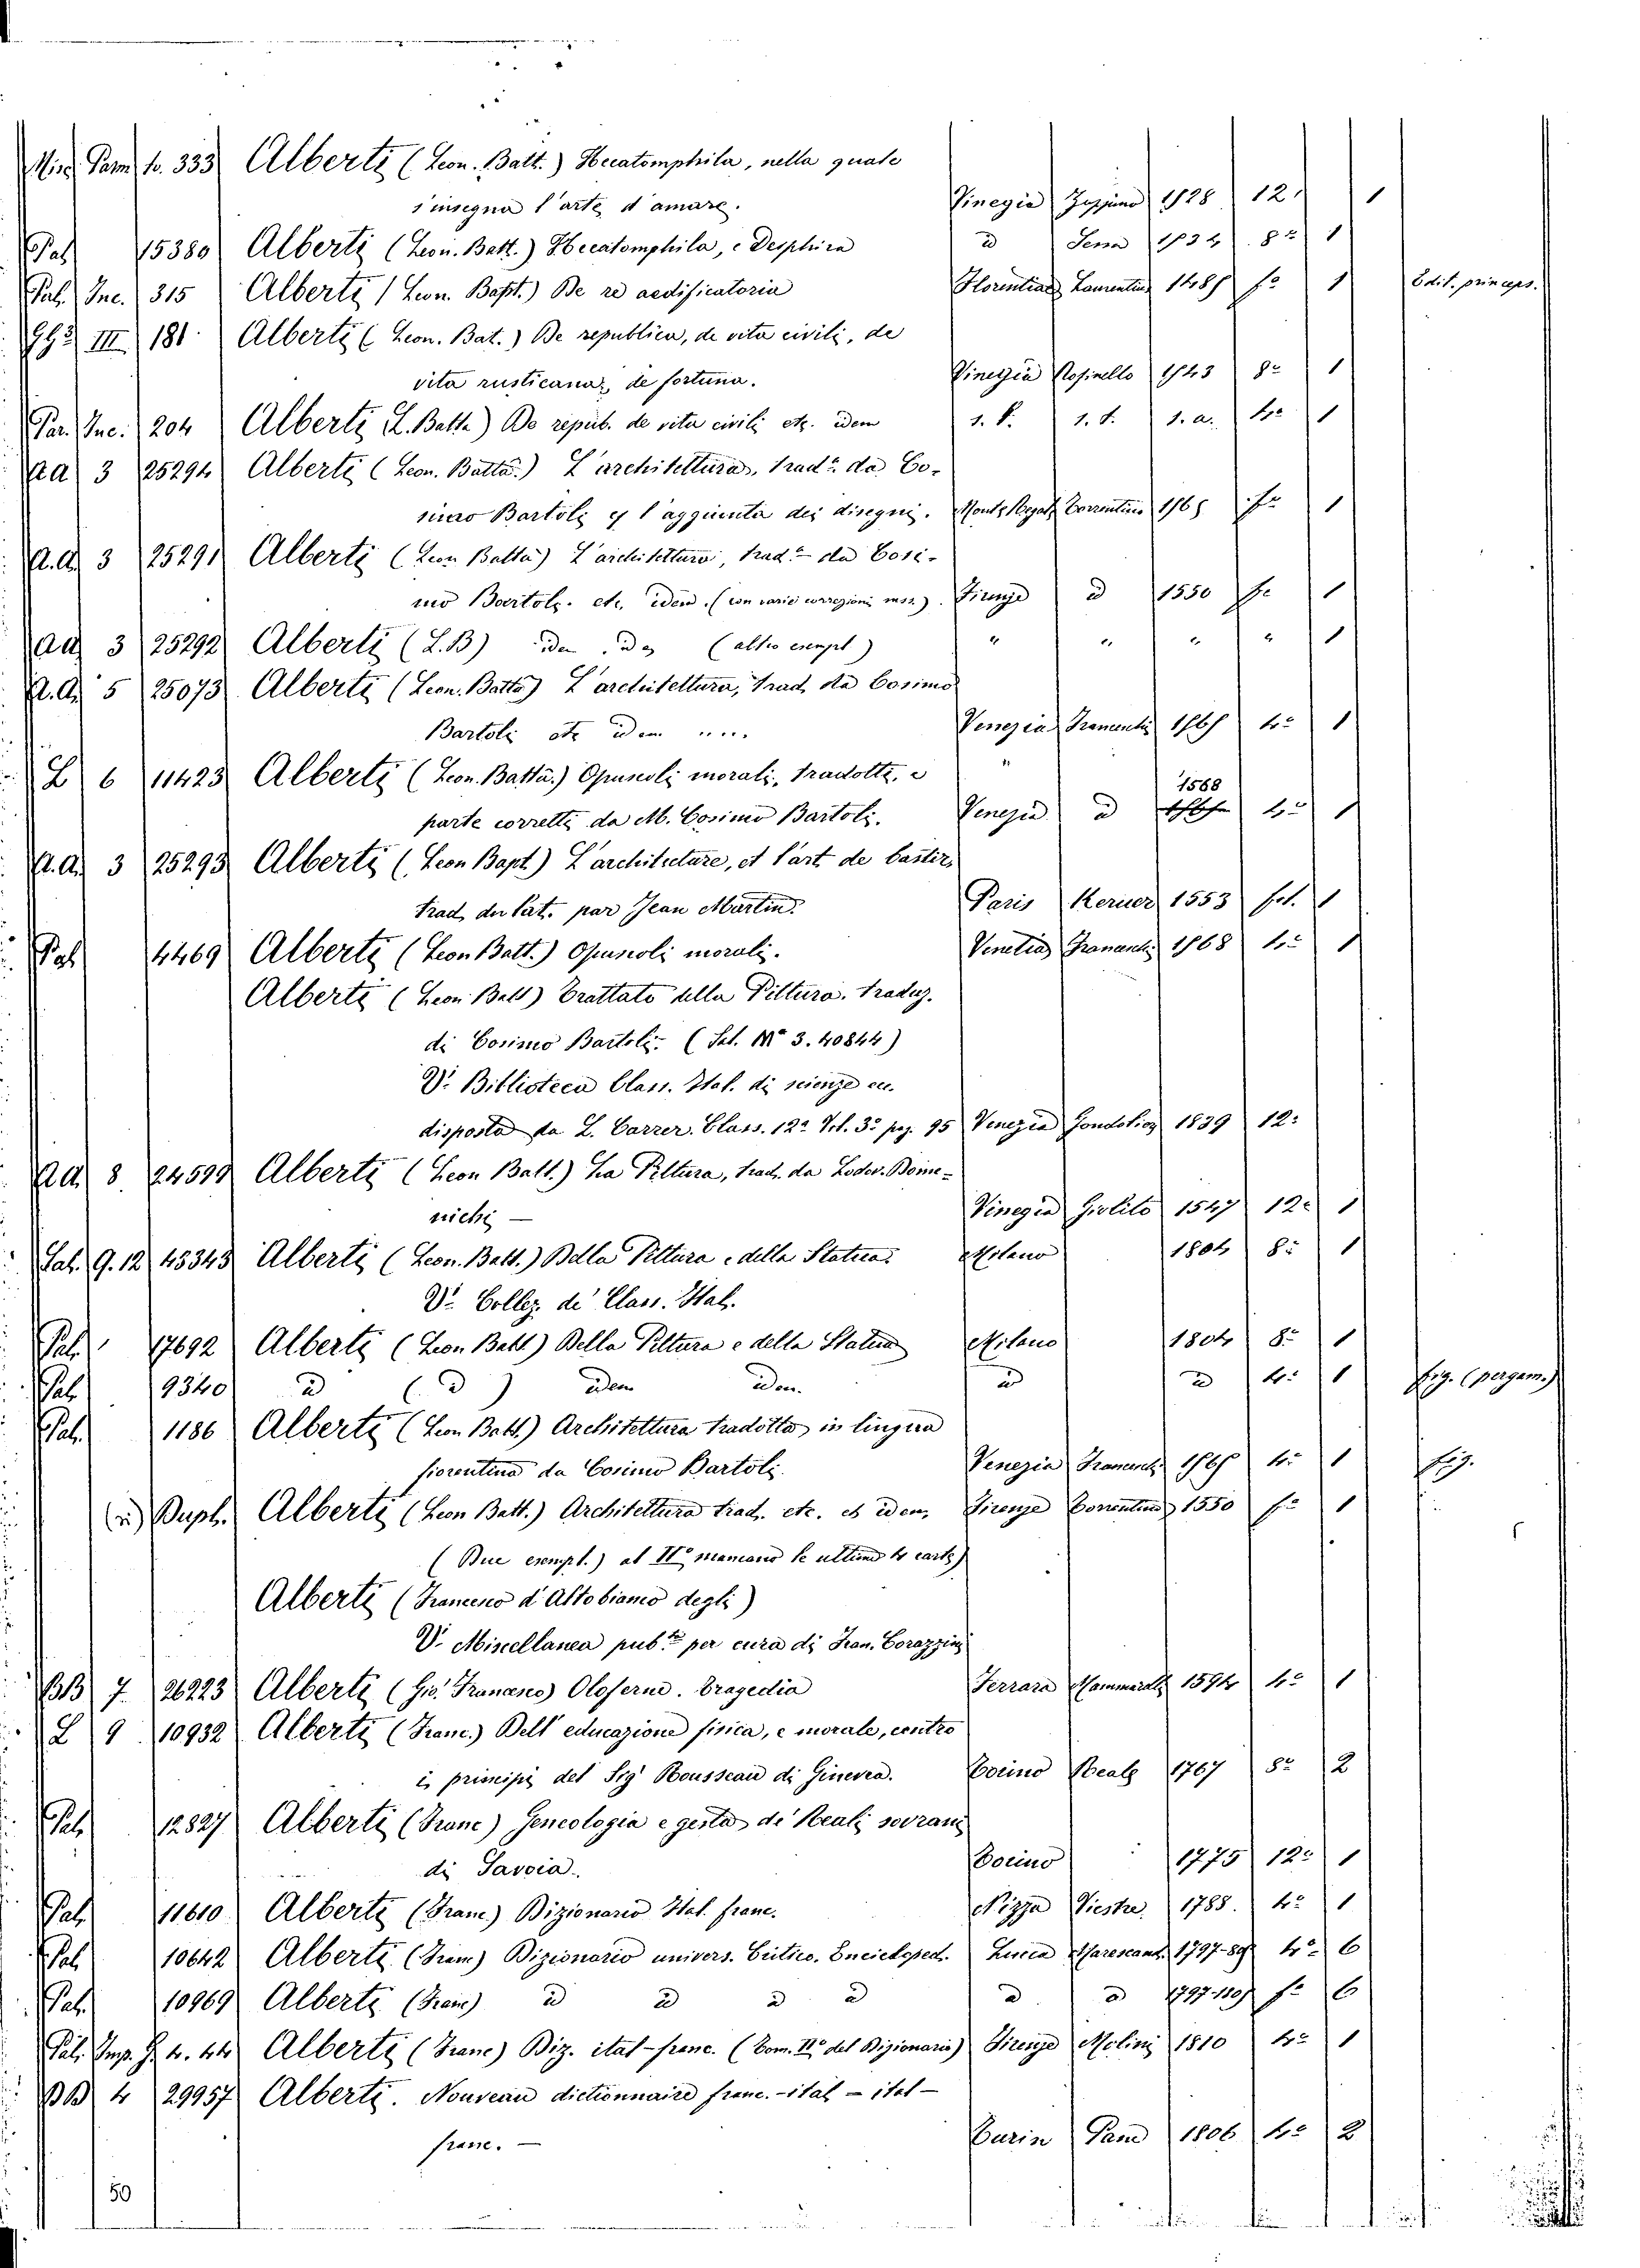 Misc. Parm. fo. 333 Alberti (Leon. Batt.) Hecatomphila, nella quale
s'insegna l'arte d'amare. Vinegia Zoppino 1528 12. 1
Pal. 15380 Alberti (Leon. Batt.) Hecatomphila, e Deiphira id Senza 1534 8° 1
Pal. Inc. 315 Alberti (Leon. Bapt.) De re aedificatoria Florentiae Laurentius 1485 fo 1 Edit. princeps.
III 181 Alberti (Leon. Bat.) De republica, de vita civili, de
vita rusticana, de fortuna. Vinezia 1543 8° 1
Par. Inc. 204 Alberti (L. Batta) De repub. de vita civili etc. idem s. l. s. t. s. a. 4° 1
AA 3 25294 Alberti (Leon. Batta.) L'architettura, trad.a da Co-
simo Bartoli e l'aggiunta dei disegni. Monte Regale Torrentino 1565 fo 1
A.A. 3 25291 Alberti (Leon Batta) L'architettura, trad.a da Cosi-
mo Bartoli. etc. idem. (con varie correzioni mss.). Firenze id 1550 fo 1
AA 3 25292 Alberti (L.B) idem idem (altro esempl) " " " " 1
A.A. 5 25073 Alberti (Leon. Batta) L'architettura, trad. da Cosimo
Bartoli etc idem .... Venezia Franceschi 1565 4° 1
L 6 11423 Alberti (Leon. Batta.) Opuscoli morali, tradotti, e "
parte corretti da M. Cosimo Bartoli. Venezia id 1568 4° 1
A.A. 3 25293 Alberti (Leon Bapt) L'architecture, et l'art de bastir,
trad. du Lat. par Jean Martin. Paris Kerver 1553 fol. 1
Pal 4469 Alberti (Leon Batt.) Opuscoli morali. Venetia Franceschi 1568 4° 1
Alberti (Leon Batt) Trattato della Pittura, traduz.
di Cosimo Bartoli. (Sal. M° 3. 40844)
V. Biblioteca Class. Ital. di scienze ecc.
disposta da L. Carrer. Class. 12a Vol. 3° pag. 95 Venezia Gondoliere 1839 12:
AA 8 24599 Alberti (Leon Batt.) La Pittura, trad. da Lodov. Dome-
nichi — Vinegia Giolito 1547 12° 1
Sal. 9. 12 45343 Alberti (Leon. Batt.) Della Pittura e della Statua. Milano 1804 8° 1
V. Collez. de' Class. Ital.
Pal. 17692 Alberti (Leon Batt) Della Pittura e della Statua Milano 1804 8° 1
Pal. 9340 id (id) idem idem. id id 4° 1 fig. (pergam.)
Pal. 1186 Alberti (Leon Batt.) Architettura tradotta in lingua
fiorentina da Cosimo Bartoli. Venezia Franceschi 1565 4° 1 fig.
Dupl. Alberti (Leon Batt.) Architettura trad. etc. et idem, Firenze Torrentino 1550 fo 1
(Due esempl.) al II° mancano le ultime 4 carte)
Alberti (Francesco d'Altobianco degli)
V. Miscellanea pub.ta per cura di Fran. Corazzini
BB 7. 26223 Alberti (Gio. Francesco) Oloferne. Tragedia Ferrara Mammarelli 1594 4° 1
L 9 10932 Alberti (Franc.) Dell'educazione fisica, e morale, contro
i principii del Sig.r Rousseau di Ginevra. Torino Reale 1767 8° 2
Pal. 12827 Alberti (Franc) Geneologia e gesta de' Reali sovrani
di Savoia. Torino 1775 12° 1
Pal. 11610 Alberti (Franc) Dizionario Ital. franc. Nizza 1788. 4° 1
Pal. 10642 Alberti (Franc) Dizionario univers. Critico. Encicloped. Lucca Marescand. 1797-805 4° 6
Pal. 10969 Alberti (Franc) id id id id id id 1797-1805 fo 6
Pal. Imp. G 4. 44 Alberti (Franc) Diz. ital-franc. (Tom. II° del Dizionario) Firenze Molini 1810 4° 1
BB 4 29957 Alberti. Nouveau dictionnaire franc.-ital - ital-
franc. — Turin Pane 1806 4° 2
50